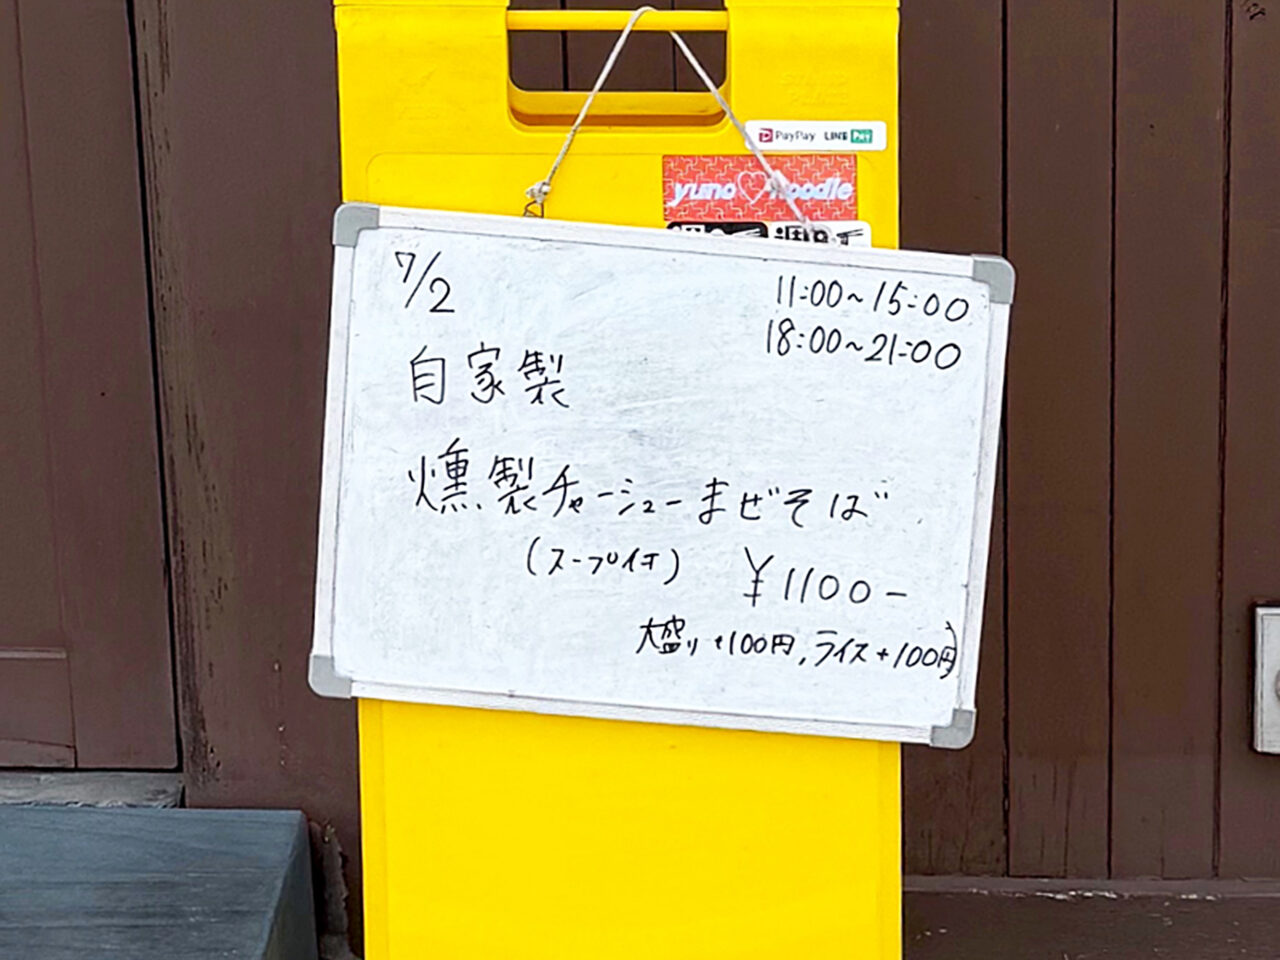 PayPay LINE Pay
yumo noodle
7/2
11:00〜15:00
18:00〜21:00
自家製
燻製チャーシューまぜそば
(スープ付)
¥1100-
大盛り+100円,ライス+100円)